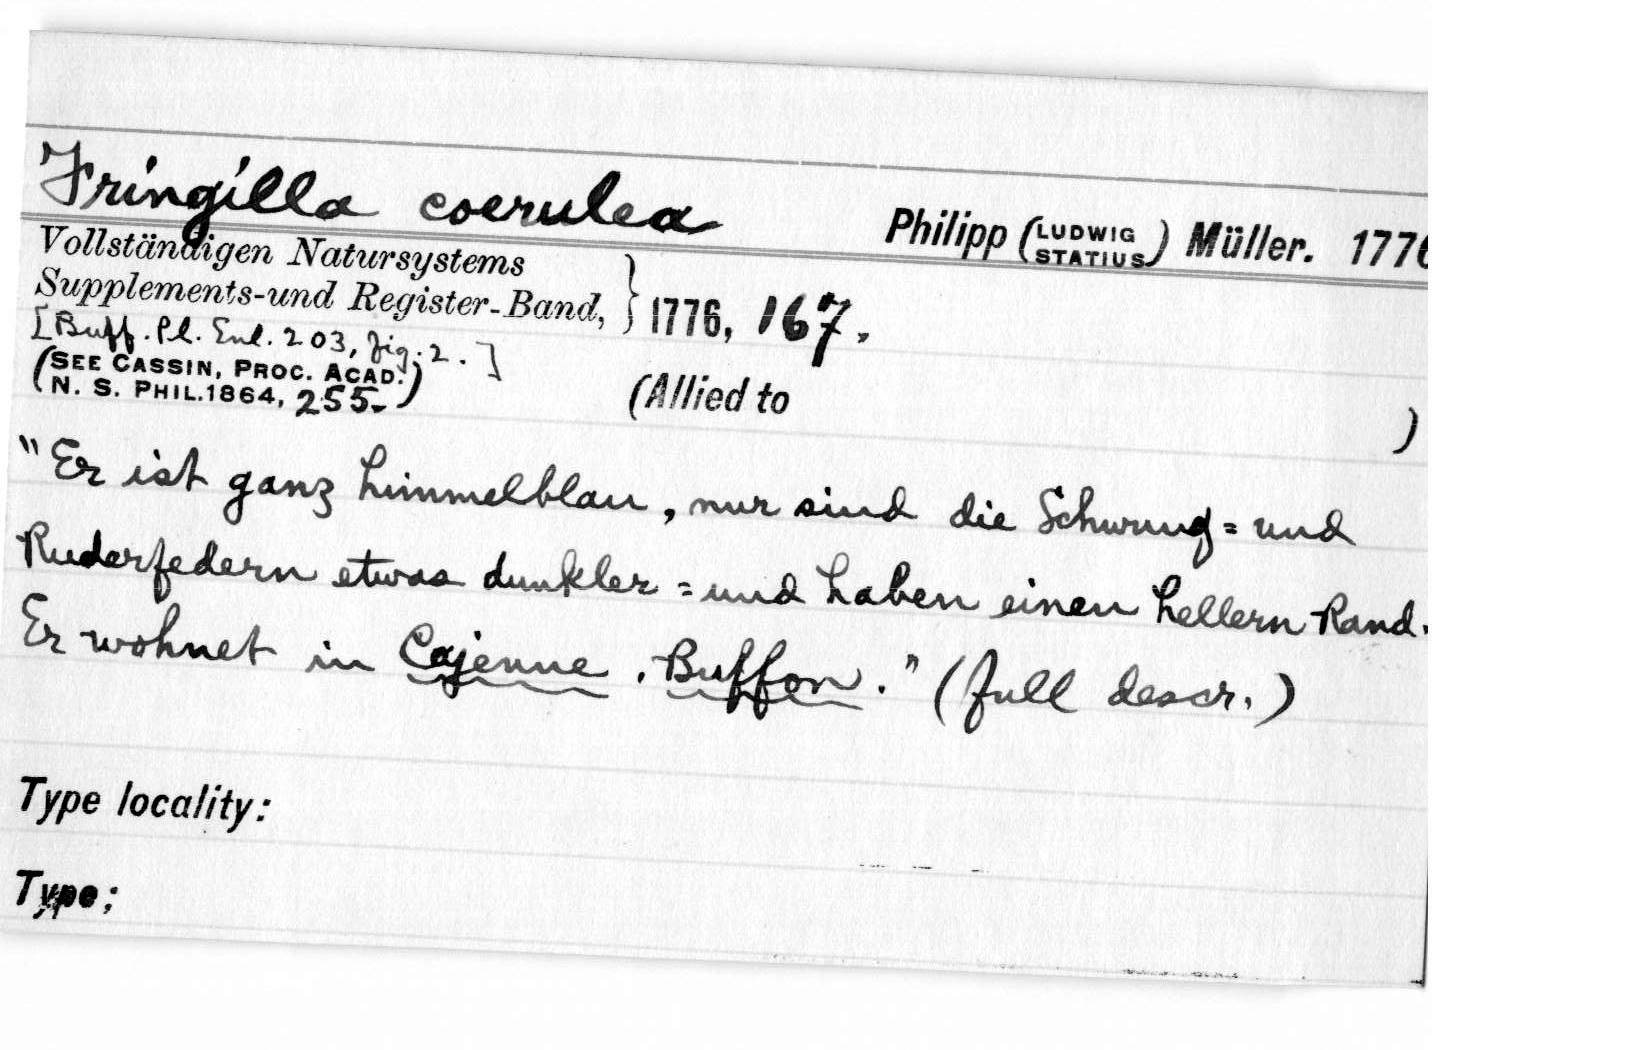 Fringilla coerulea
Philipp (LUDWIG STATIUS) Müller. 1776
Vollständigen Natursystems
Supplements-und Register-Band, } 1776, 167.
[Buff. Pl. Enl. 203, fig. 2.]
(SEE CASSIN, PROC. ACAD.
N. S. PHIL. 1864, 255.)
(Allied to )
"Er ist ganz himmelblau, nur sind die Schwung= und
Ruderfedern etwas dunkler = und haben einen hellern Rand.
Er wohnet in Cajenne. Buffon." (full descr.)
Type locality:
Type;